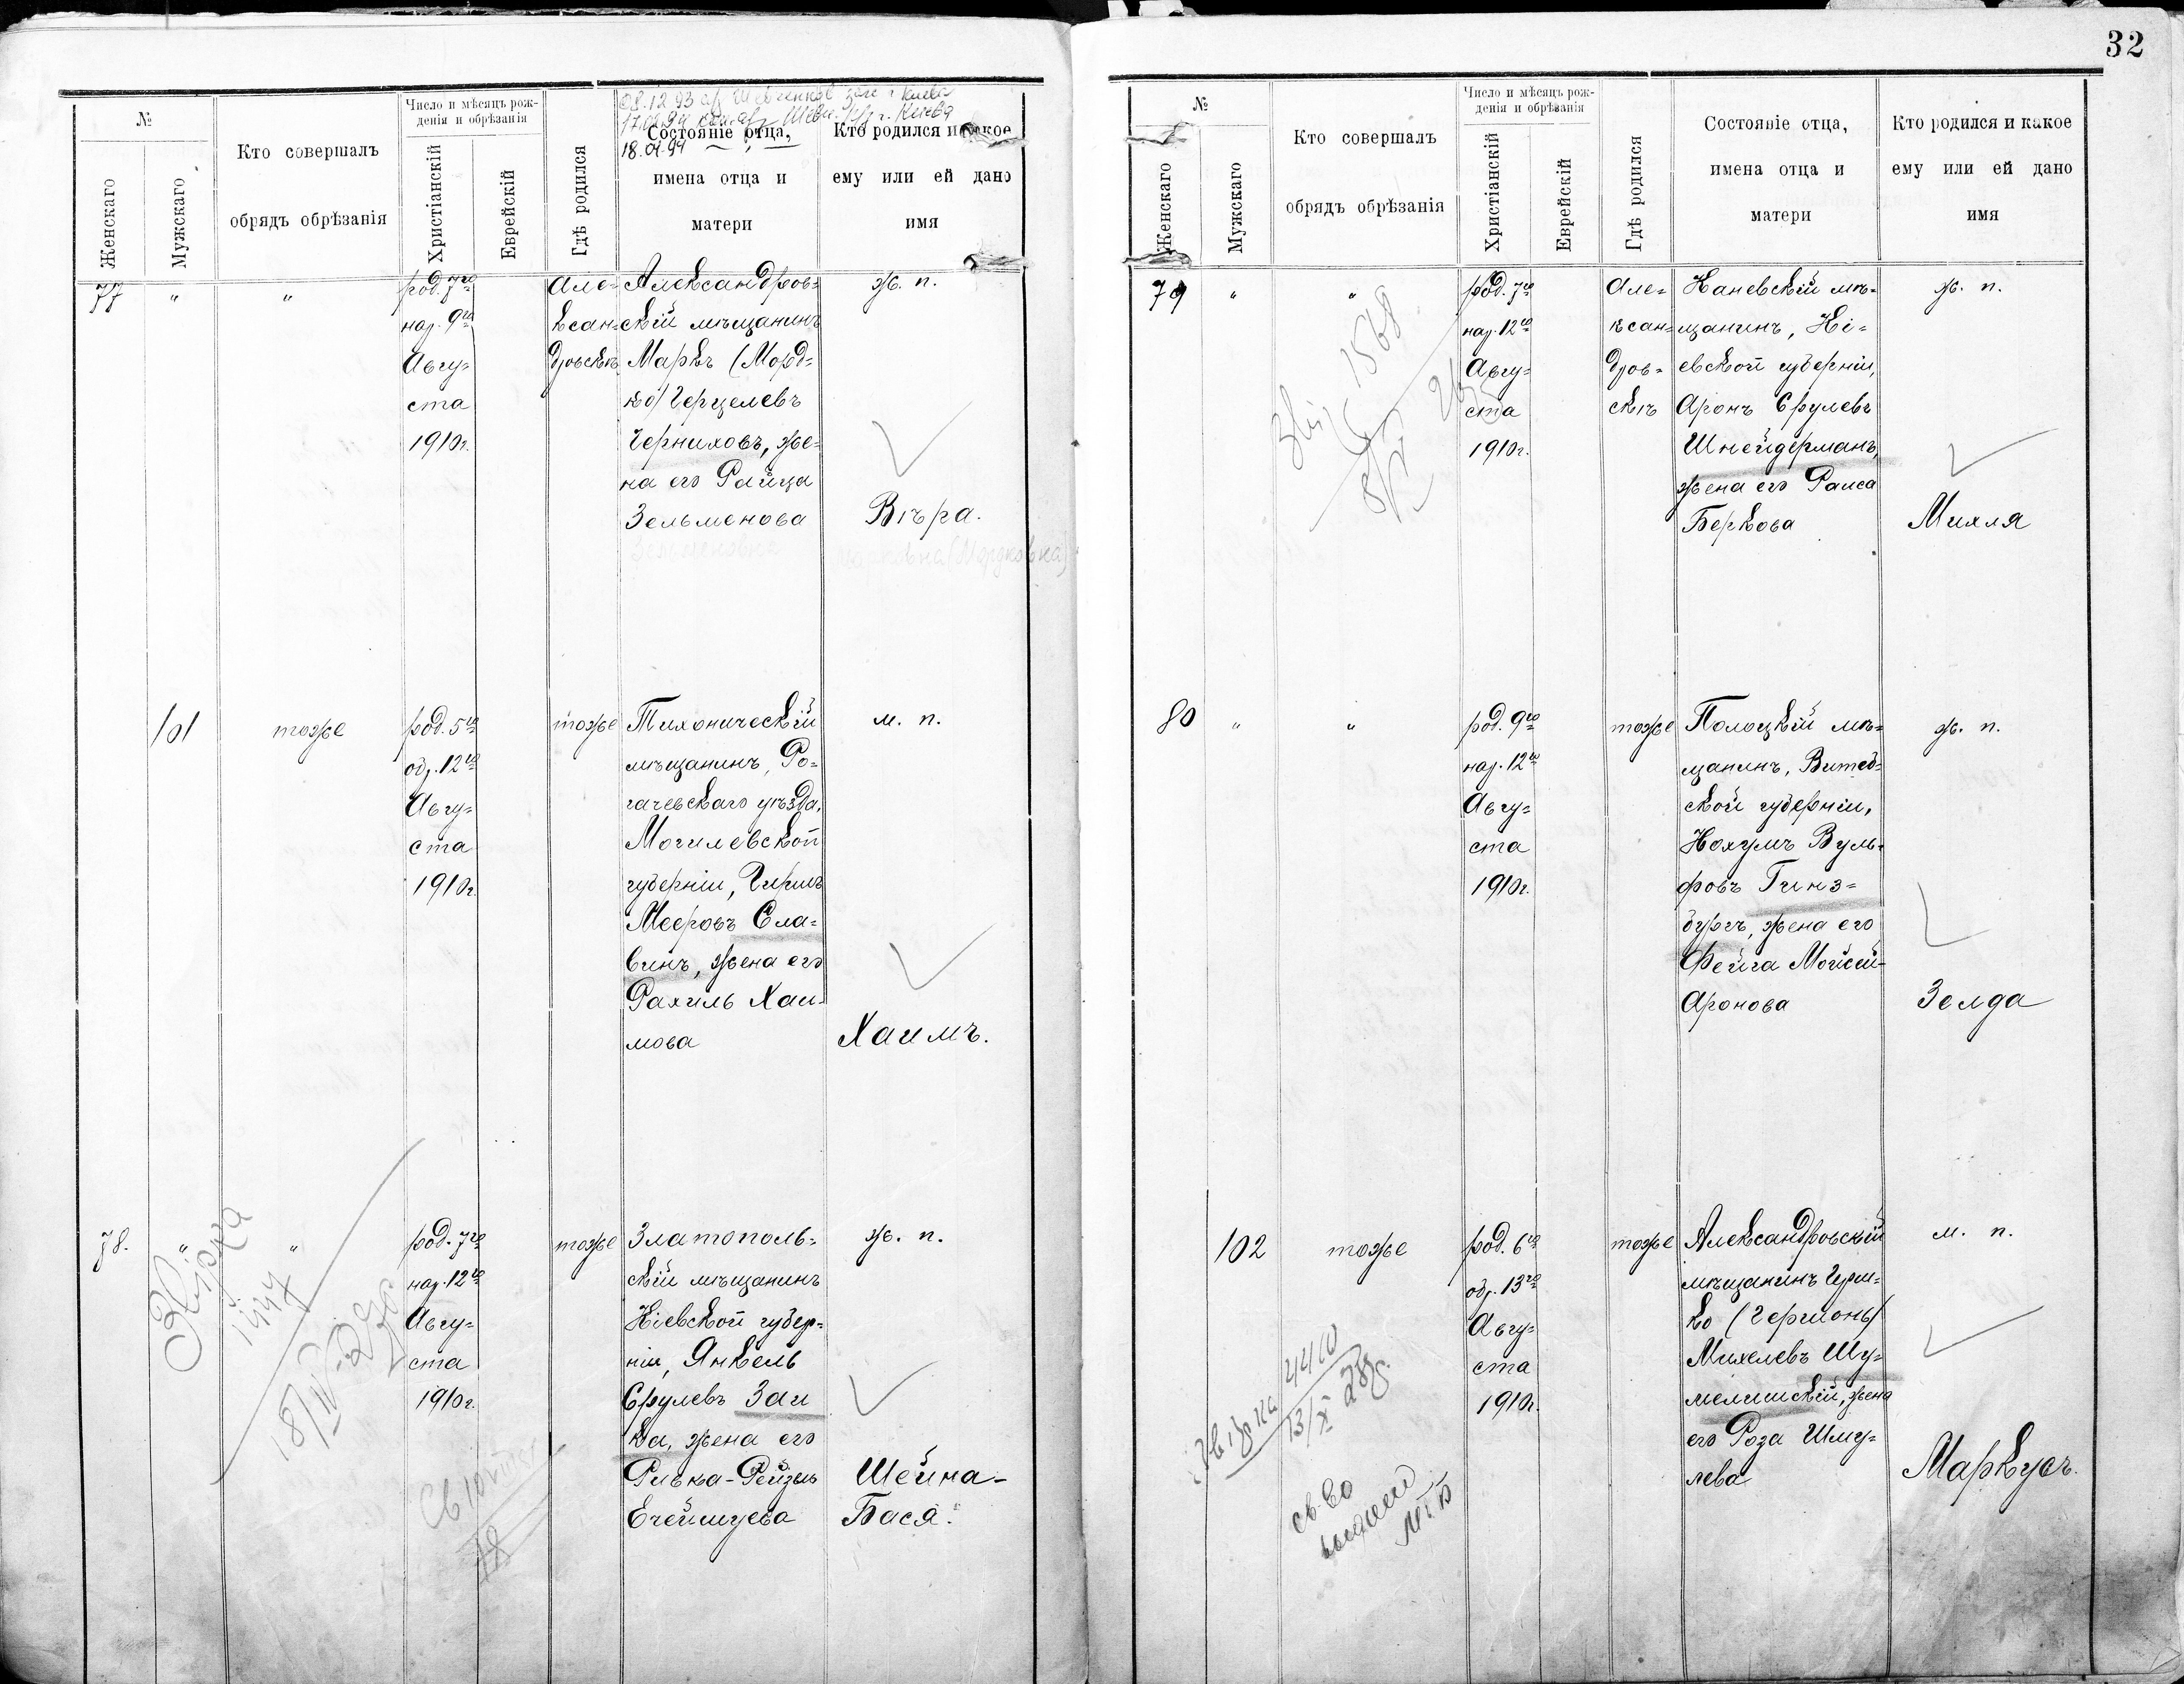 32
№
Женскаго
Мужскаго
Кто совершалъ
обрядъ обрѣзанія
Число и мѣсяцъ рож-
денія и обрѣзанія
Христіанскій
Еврейскій
Гдѣ родился
08.12.93
18.01.94
Состояніе отца,
имена отца и
матери
Кто родился и какое
ему или ей дано
имя
77
"
"
род. 7го
нар. 9го
Авгу=
ста
1910г.
Але=
ксан=
дровскѣ
Александров=
скій мѣщанинъ
Маркъ (Морд=
ко) Герцелевъ
Черниховъ, же=
на его Райца
Зельменова
Зельменовна
ж. п.
Вѣра.
Марковна (Мордковна)
101
тоже
род. 5го
обр. 12го
Авгу=
ста
1910г.
тоже
Тихоническій
мѣщанинъ, Ро=
гачевскаго уѣзда,
Могилевской
губерніи, Гиршъ
Мееровъ Сла=
винъ, жена его
Рахиль Хаи=
мова
м. п.
Хаимъ.
78.
"
"
род. 7го
нар. 12го
Авгу=
ста
1910г.
тоже
Златополь=
скій мѣщанинъ
Кіевской губер=
ніи, Янкель
Срулевъ Заи
ка, жена его
Ривка-Рейзя
Ечеймуева
ж. п.
Шейна-
Бася.
№
Женскаго
Мужскаго
Кто совершалъ
обрядъ обрѣзанія
Число и мѣсяцъ рож-
денія и обрѣзанія
Христіанскій
Еврейскій
Гдѣ родился
Состояніе отца,
имена отца и
матери
Кто родился и какое
ему или ей дано
имя
79
"
"
1568
род. 7го
нар. 12го
Авгу=
ста
1910г.
Але=
ксан=
дров=
скѣ
Каневскій мѣ=
щанинъ, Кі=
евской губерніи,
Аронъ Срулевъ
Шнейдерманъ,
жена его Раиса
Беркова
ж. п.
Михля
80
"
"
род. 9го
нар. 12го
Авгу=
ста
1910г.
тоже
Полоцкій мѣ=
щанинъ, Витеб=
ской губерніи,
Нохумъ Вуль=
фовъ Гинз=
бургъ, жена его
Фейга Мойсей-
Аронова
ж. п.
Зелда
102
тоже
род. 6го
обр. 13го
Авгу=
ста
1910г.
тоже
Александровскій
мѣщанинъ Герш=
ко (Гершонъ)
Михелевъ Шу=
мелишскій, жена
его Роза Шму=
лева
м. п.
Маркусъ.
Звірка 4410
13/X 28р.
св-во